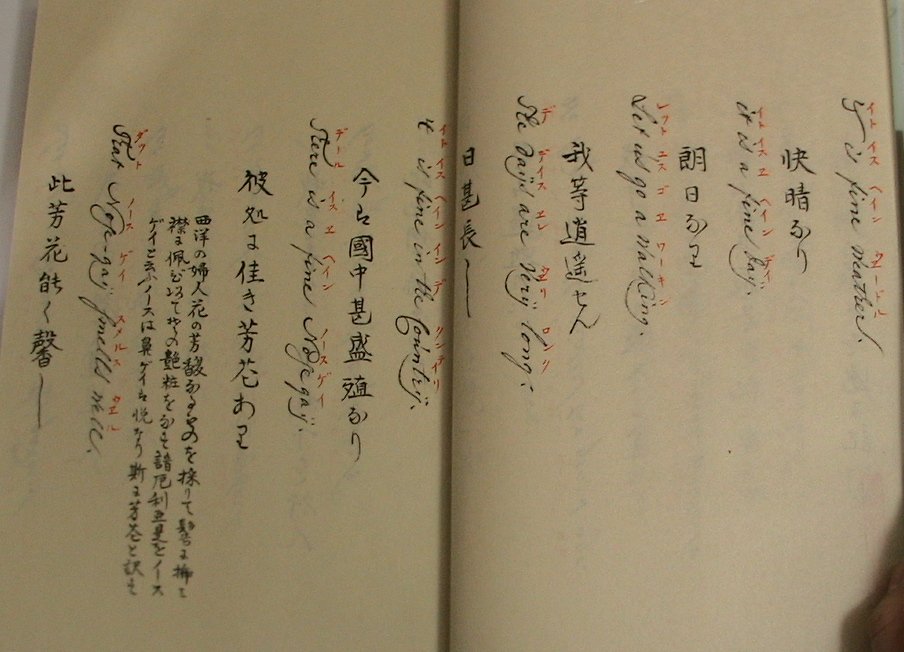 イト イス ヘイン ウェードル
It is fine weather.
快晴なり
イト イス エ ヘイン デイ
it is a fine day.
朗日なり
レット ユス ゴ エ ワーキン
Let us go a walking.
我等逍遥せん
デ デイス エレ ウェリ ロング
the days are very long.
日甚長し
イト イス ヘイン イン デ クンテイリ
it is fine in the Country.
今は國中甚盛殖なり
デール イス エ ヘイン ノースゲイ
there is a fine Nose gay.
彼処に佳き芳花あり
西洋の婦人花の芳馥なるものを採りて髻に挿し
襟に佩びるてその艶粧をなす諳厄利亜是をノース
ゲイと云ふノースは鼻ゲイは悦なり斯に芳花と訳す
ダット ノース ゲイ スメルス ウエル
that Nose-gay smells well.
此芳花能く馨し